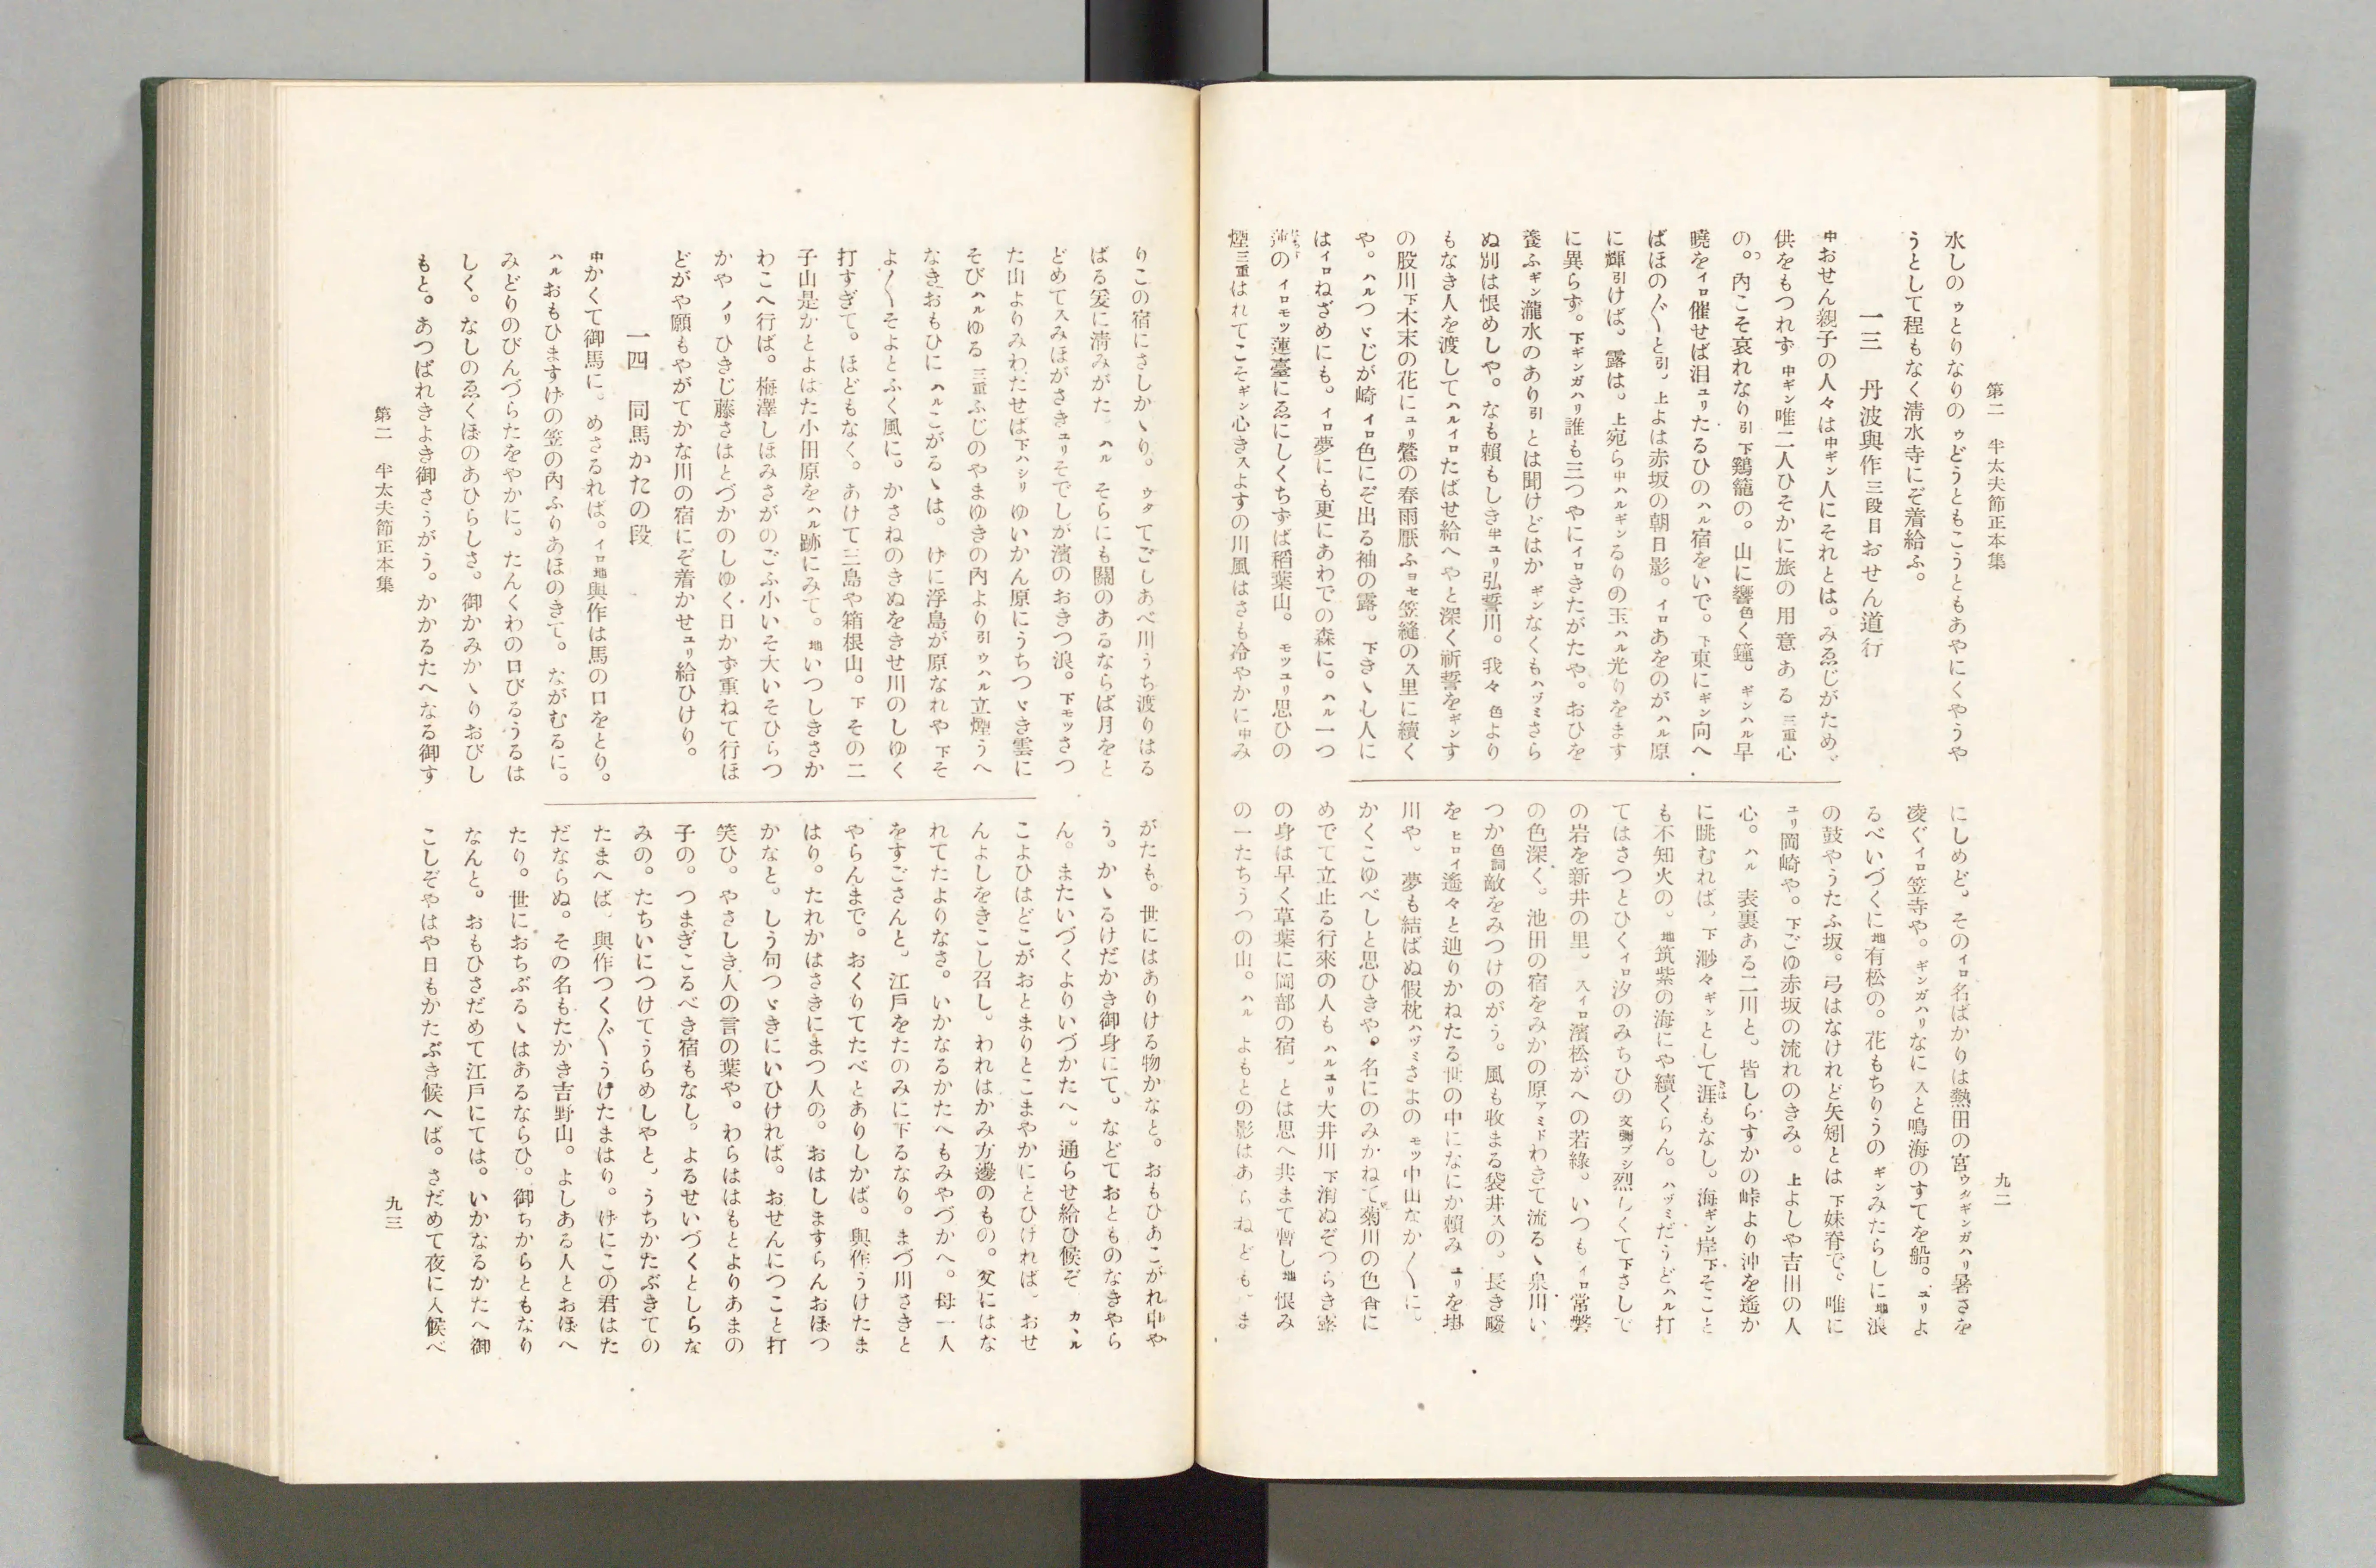 第二　半太夫節正本集
九二
水しの ゥとりなりの ゥどうともこうともあやにくやうや
うとして程もなく清水寺にぞ着給ふ。
一三　丹波與作三段目おせん道行
中おせん親子の人々は中ギン人にそれとは。みゑじがため。
供をもつれず 中ギン唯二人ひそかに旅の 用 意 あ る 三重心
の。內こそ哀れなり引 下鷄籠の。山に響色く鐘。ギンハル早
曉をイロ催せば泪ユリたるひのハル宿をいで。下東にギン向へ
ばほの〲と引。上よは赤坂の朝日影。イロあをのがハル原
に輝引けば。露は。上宛ら中ハルギンるりの玉ハル光りをます
に異らず。下ギンガハリ誰も三つやにイロきたがたや。おひを
養ふギン瀧水のあり引 とは聞けどはか ギンなくもハヅミさら
ぬ別は恨めしや。なも賴もしき半ユリ弘誓川。我々 色より
もなき人を渡してハルイロたばせ給へ やと深く祈誓をギンす
の股川下木末の花にユリ鶯の春雨厭ふヨセ笠縫のス里に續く
や。ハルつゞじが崎 イロ色にぞ出る袖の露。下きゝし人に
はイロねざめにも。イロ夢にも更にあわでの森に。ハル一つ
の イロモツ蓮臺にゑにしくちずば稻葉山。モツユリ思ひの
煙三重はれてこそギン心きスよすの川風はさも冷やかに中み
にしめど。そのイロ名ばかりは熱田の宮ウルギンガハリ暑さを
凌ぐイロ笠寺や。ギンガハリなに スと鳴海のすてを船。ユリよ
るべいづくに地有松の。花もちりうの ギンみたらしに地浪
の鼓やうたふ坂。弓はなけれど矢矧とは 下妹脊で。唯に
ユリ岡崎や。下ごゆ赤坂の流れのきみ。上よしや吉田の人
心。ハル 表裏ある二川と。皆しらすかの峠より沖を遙か
に眺むれば。下 渺々ギンとして涯もなし。海ギン岸下そこと
も不知火の。地筑紫の海にや續くらん。ハヅミだうどハル打
てはさつとひくイロ汐のみちひの 文彌ブシ烈しくて下さしで
の岩を新井の里。スイロ濱松がへの若綠。いつも イロ常磐
の色深く。池田の宿をみかの原アミドわきて流るゝ泉川い
つか色詞敵をみつけのがう。風も收まる袋井スの。長き畷
を ヒロイ遙々と辿りかねたる世の中になにか賴み ユリを掛
川や。夢も結ばぬ假枕ハヅミさよの モツ中山なか〱に。
かくこゆべしと思ひきや。名にのみかねて菊川の色音に
めでて立止る行來の人も ハルユリ大井川 下消ぬぞつらき露
の身は早く草葉に岡部の宿。とは思へ共まて暫し地恨み
の一たちうつの山。ハル よもとの影はあらねども。ま
りこの宿にさしかゝり。ウタてごしあべ川うち渡りはる
ばる爰に清みがた。ハル そらにも關のあるならば月をと
どめてスみほがさきユリそでしが濱のおきつ浪。下モツさつ
た山よりみわたせば下ハシリ ゆいかん原にうちつゞき雲に
そびハルゆる 三重ふじのやまゆきの內より引 ウハル立煙うへ
なきおもひに ハルこがるゝは。げに浮島が原なれや 下そ
よ〱そよとふく風に。かさねのきぬをきせ川のしゆく
打すぎて。ほどもなく。あけて三島や箱根山。下 その二
子山是かとよはた小田原をハル跡にみて。地いつしきさか
わこへ行ば。梅澤しほみさがのごふ小いそ大いそひらつ
かや ノリ ひきじ藤さはとづかのしゆく日かず重ねて行ほ
どがや願もやがてかな川の宿にぞ着かせユリ給ひけり。
一四　同馬かたの段
中かくて御馬に。めさるれば。イロ地與作は馬の口をとり。
ハルおもひますげの笠の內ふりあほのきて。ながむるに。
みどりのびんづらたをやかに。たんくわの口びるうるは
しく。なしのゑくぼのあひらしさ。御かみかゝりおびし
もと。あつぱれきよき御さうがう。かかるたへなる御す
がたも。世にはありける物かなと。おもひあこがれ中や
う。かゝるけだかき御身にて。などておとものなきやら
ん。またいづくよりいづかたへ。通らせ給ひ候ぞ カヽル
こよひはどこがおとまりとこまやかにとひければ。おせ
んよしをきこし召し。われはかみ方邊のもの。父にはな
れてたよりなさ。いかなるかたへもみやづかへ。母一人
をすごさんと。江戶をたのみに下るなり。まづ川さきと
やらんまで。おくりてたべとありしかば。與作うけたま
はり。たれかはさきにまつ人の。おはしますらんおぼつ
かなと。しう句つゞきにいひければ。おせんにつこと打
笑ひ。やさしき人の言の葉や。わらははもとよりあまの
子の。つまぎこるべき宿もなし。よるせいづくとしらな
みの。たちいにつけてうらめしやと。うちかたぶきての
たまへば。與作つく〲うけたまはり。げにこの君はた
だならぬ。その名もたかき吉野山。よしある人とおぼへ
たり。世におちぶるゝはあるならひ。御ちからともなり
なんと。おもひさだめて江戶にては。いかなるかたへ御
こしぞやはや日もかたぶき候へば。さだめて夜に入候べ
第二　半太夫節正本集
九三